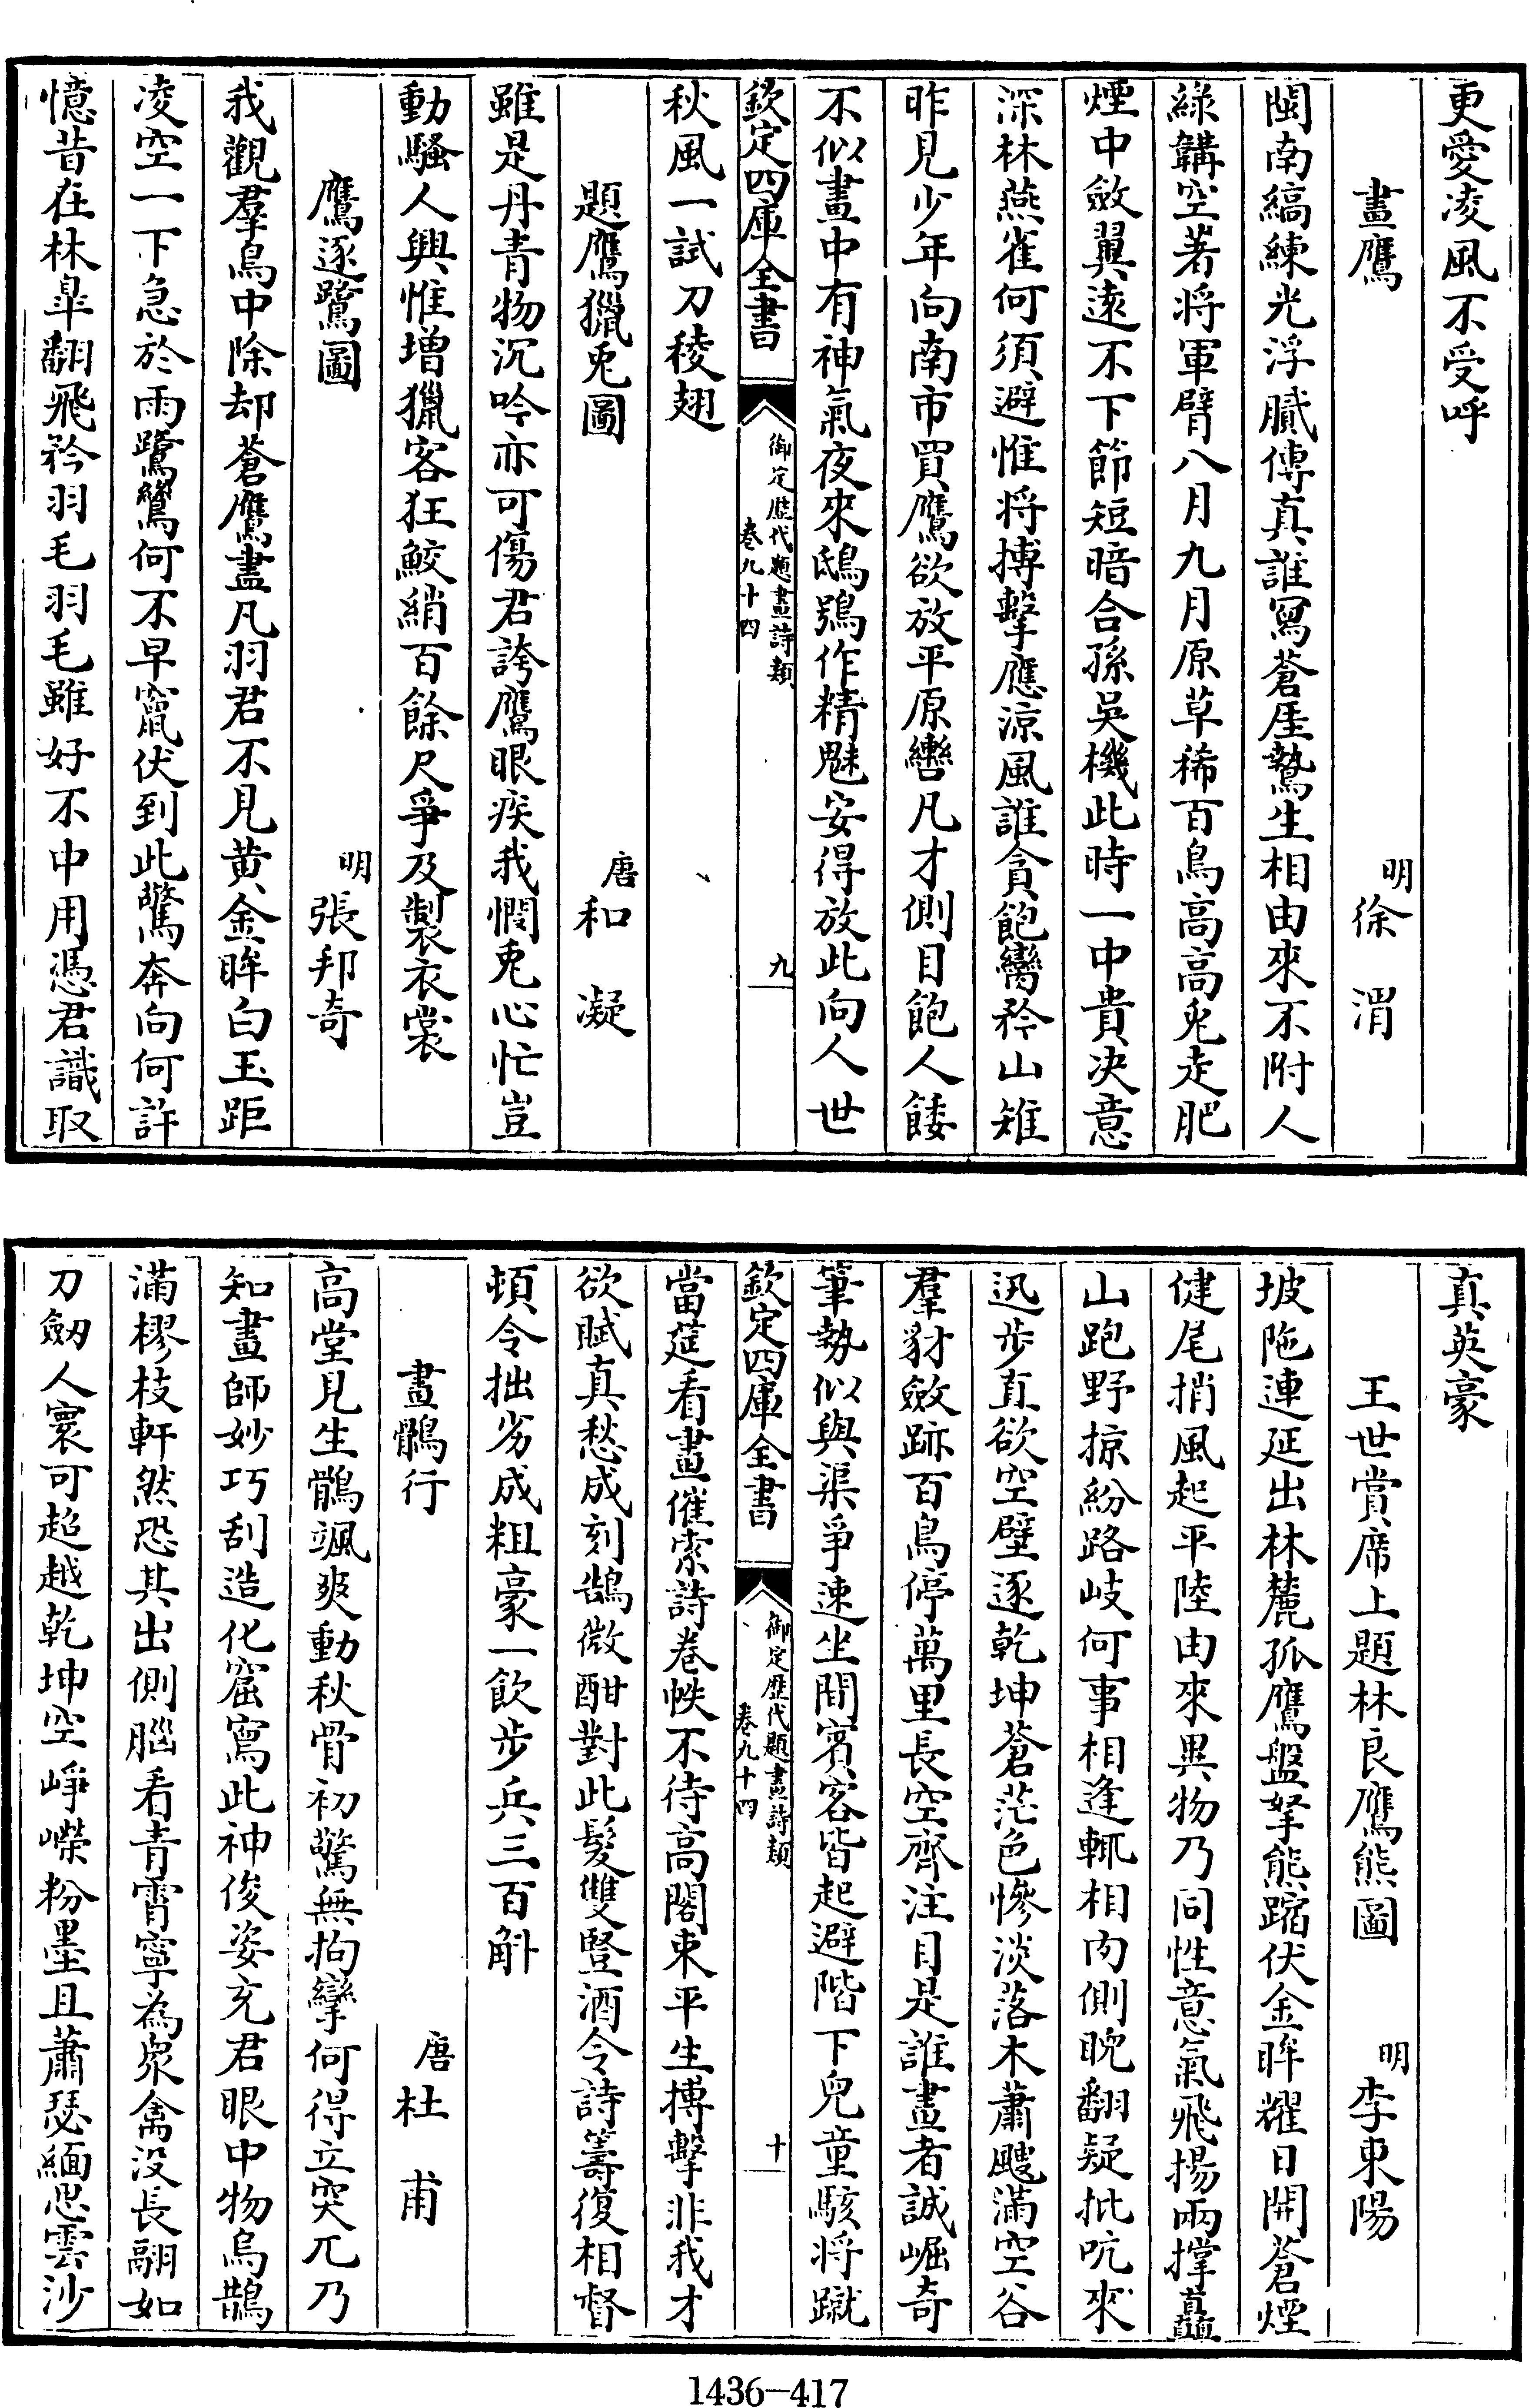 更愛凌風不受呼
畫鷹 明徐渭
閩南縞練光浮膩傳真誰寫蒼厓鷙生相由來不附人
綠鞲空著將軍臂八月九月原草稀百鳥高高兎走肥
煙中斂翼遠不下節短暗合孫吳機此時一中貴决意
深林燕雀何須避惟将搏擊應涼風誰貪飽臠矜山雉
昨見少年向南市買鷹欲放平原轡凡才側目飽人餧
不似畫中有神氣夜來鴟鴞作精魅安得放此向人世
欽定四庫全書 御定歷代題畫詩類 卷九十四 九
秋風一試刀稜翅
題鷹獵兎圖 唐和凝
雖是丹青物沉吟亦可傷君誇鷹眼疾我憫兎心忙豈
動騷人興惟增獵客狂鮫綃百餘尺爭及製衣裳
鷹逐鷺圖 明張邦奇
我觀羣鳥中除却蒼鷹盡凡羽君不見黄金眸白玉距
凌空一下急於雨鷺鷥何不早竄伏到此驚奔向何許
憶昔在林臯翻飛矜羽毛羽毛雖好不中用憑君識取
真英豪
王世賞席上題林良鷹熊圖 明李東陽
坡陁連延出林麓孤鷹盤拏熊蹜伏金眸耀日開蒼煙
健尾捎風起平陸由來異物乃同性意氣飛揚兩撑矗
山跑野掠紛路岐何事相逢輒相肉側睨翻疑批吭來
迅步直欲空壁逐乾坤蒼茫色慘淡落木蕭飈滿空谷
羣豺斂跡百鳥停萬里長空齊注目是誰畫者誠崛奇
筆勢似與渠爭速坐間賓客皆起避階下兒童駭将蹴
欽定四庫全書 御定歷代題畫詩類 卷九十四 十
當筵看畫催索詩卷帙不待高閣束平生搏擊非我才
欲賦真愁成刻鵠微酣對此髮雙豎酒令詩籌復相督
頓令拙劣成粗豪一飲步兵三百斛
畫鶻行 唐杜甫
高堂見生鶻颯爽動秋骨初驚無拘攣何得立突兀乃
知畫師妙巧刮造化窟寫此神俊姿充君眼中物烏鵲
滿樛枝軒然恐其出側腦看青霄寧為衆禽没長翮如
刀劒人寰可超越乾坤空崢嶸粉墨且蕭瑟緬思雲沙
1436-417